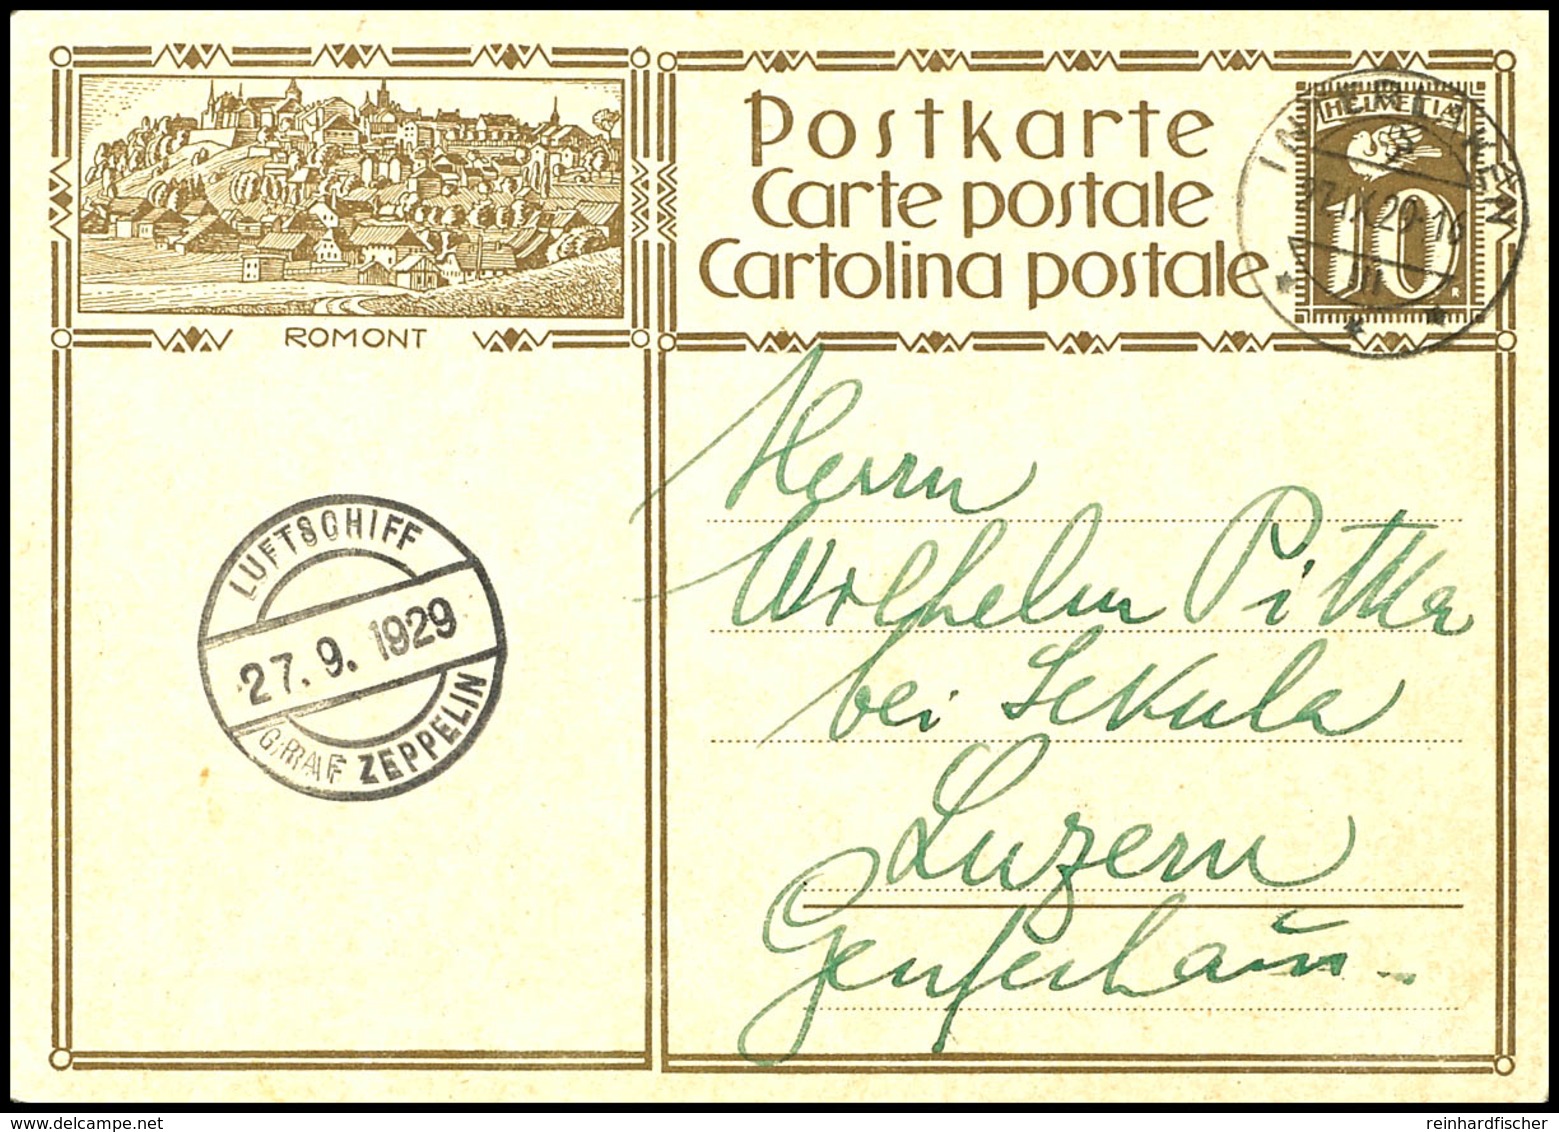 Postkarte
Carte postale
Cartolina postale
HELVETIA
10
INTERLAKEN
27.IX.29-16
III
ROMONT
LUFTSCHIFF
27.9.1929
GRAF ZEPPELIN
Herrn
Wilhelm
bei Sekula
Luzern
reinhardfischer